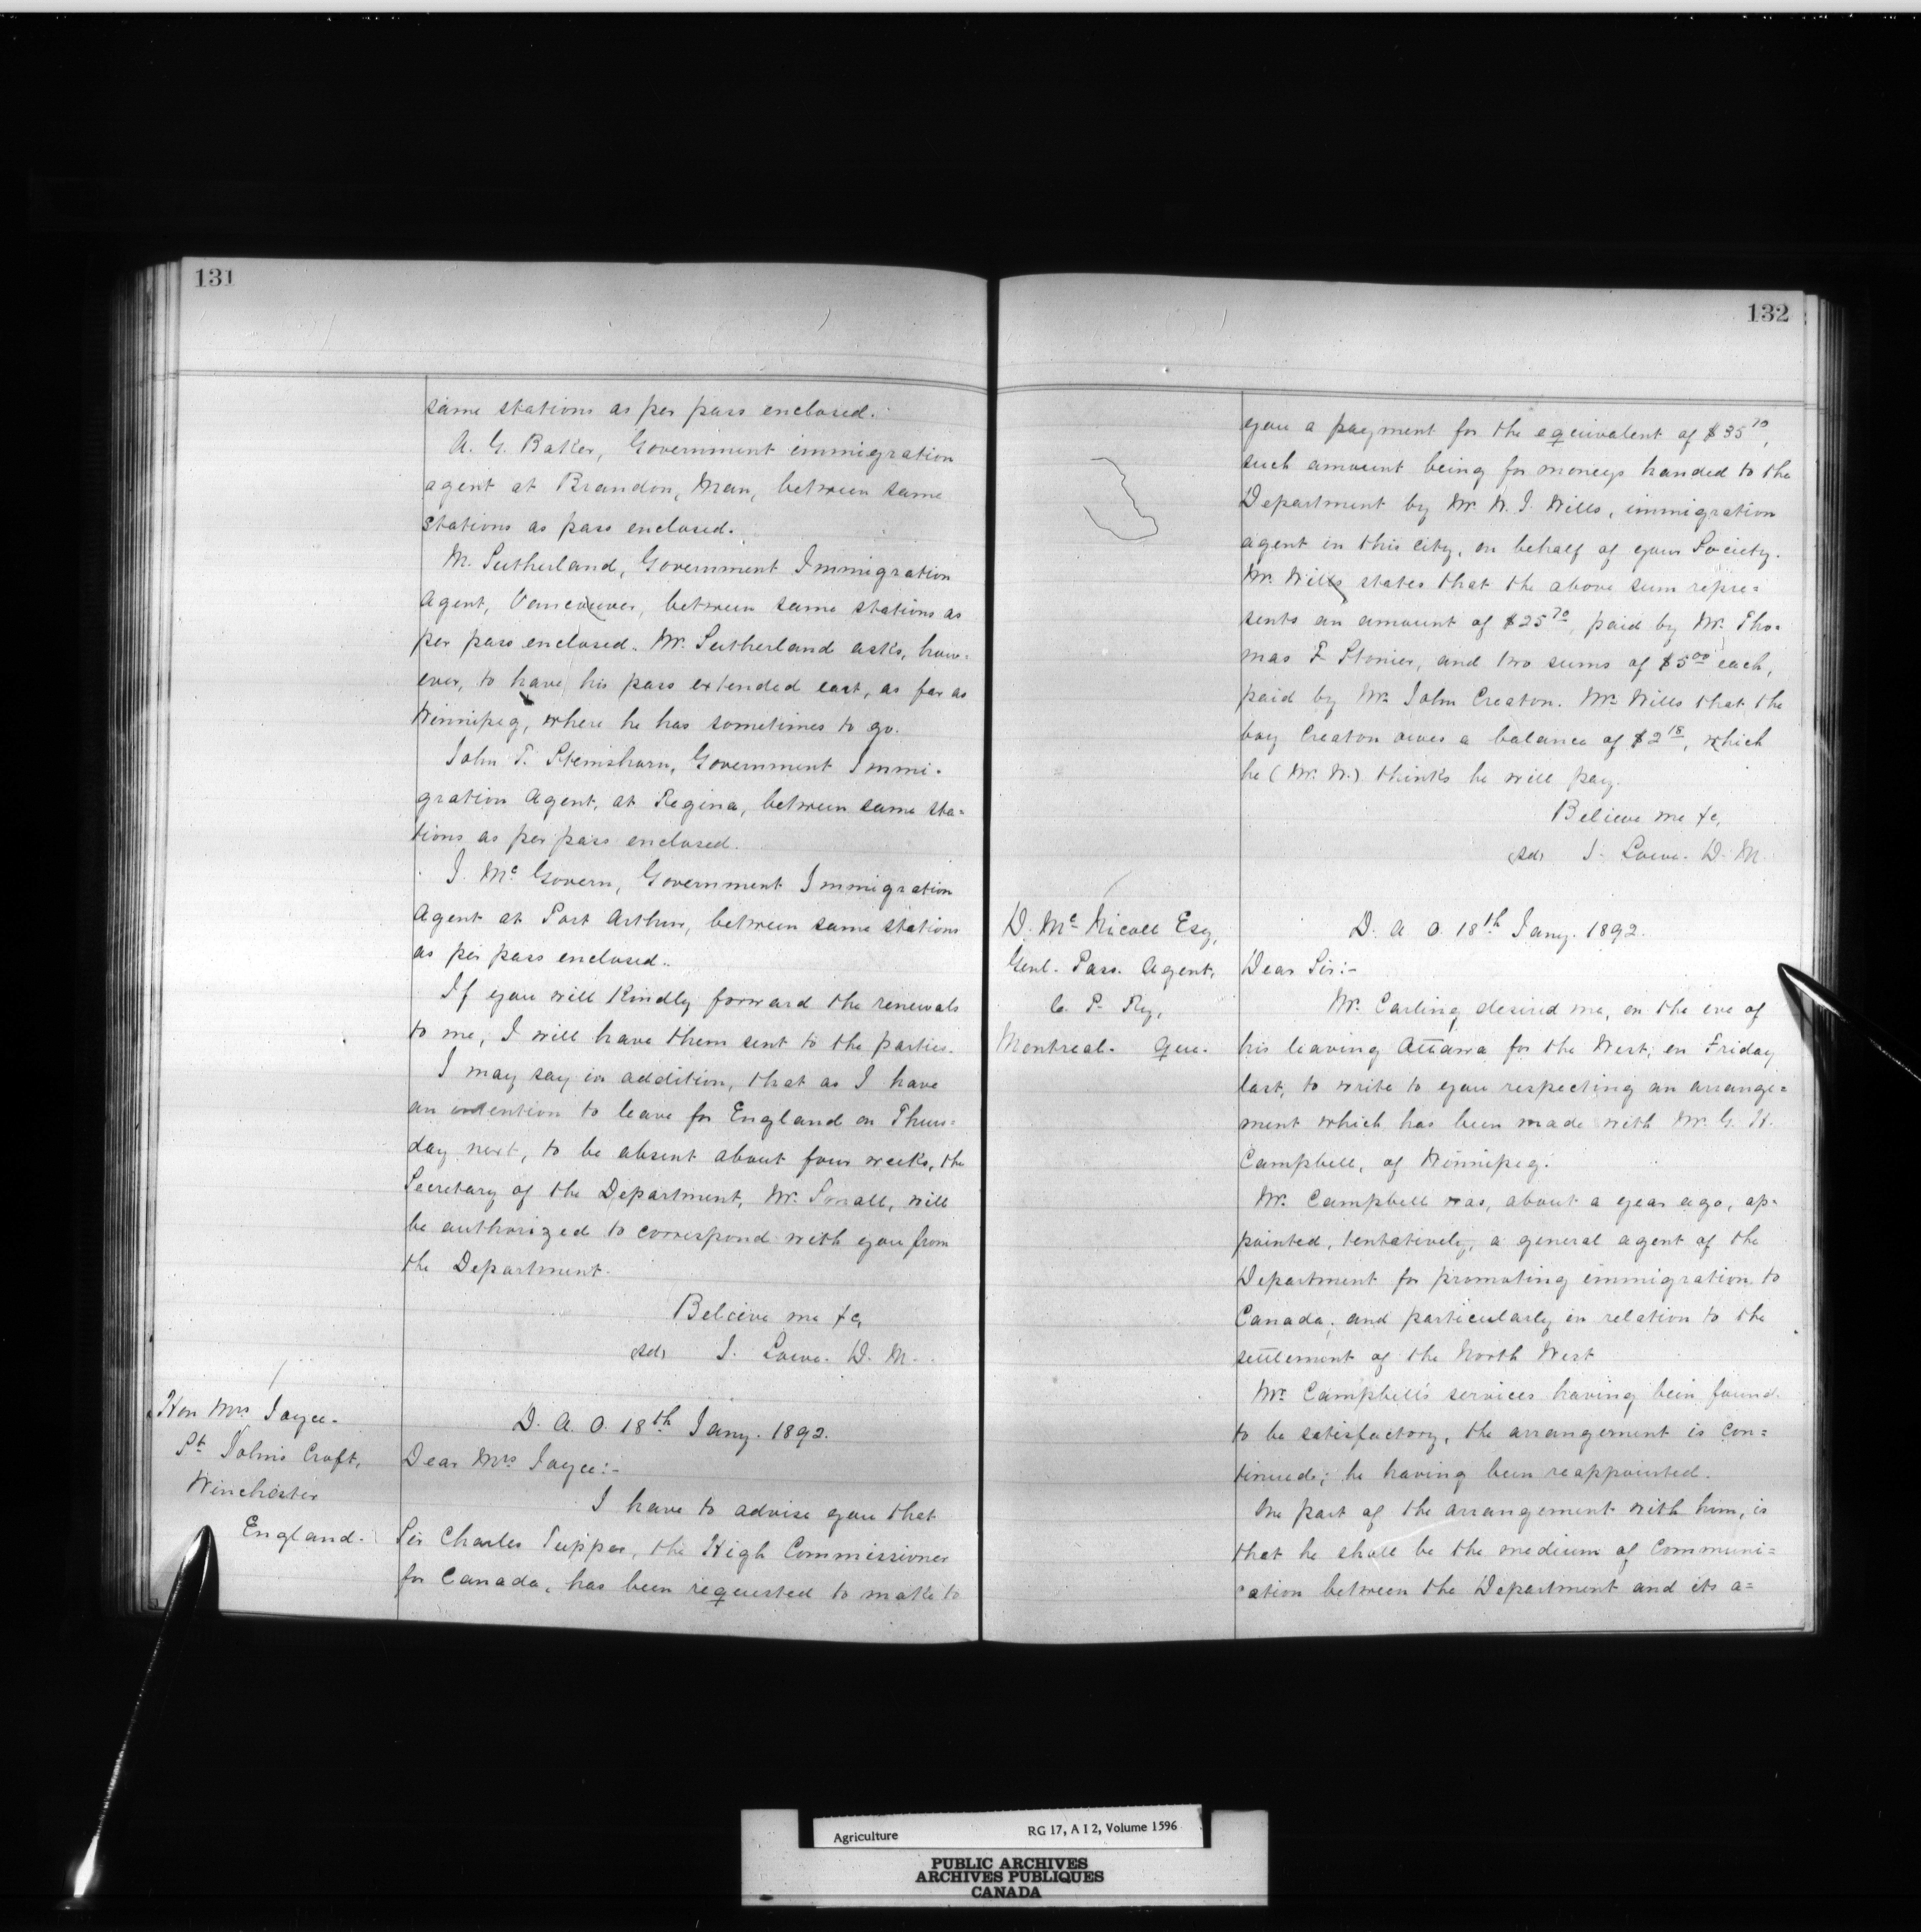 131
same stations as per pass enclosed.
A. G. Baker, Government immigration
agent at Brandon, Man, between same
stations as pass enclosed.
M. Sutherland, Government Immigration
Agent, Vancouver, between same stations as
per pass enclosed. Mr. Sutherland asks, how-
ever, to have his pass extended east, as far as
Winnipeg, where he has sometimes to go.
John T. Stemshorn, Government Immi-
gration Agent, at Regina, between same sta=
tions as per pass enclosed.
J. Mc Govern, Government Immigration
Agent at Port Arthur, between same stations
as per pass enclosed.
If you will Kindly forward the renewals
to me, I will have them sent to the parties.
I may say in addition, that as I have
an intention to leave for England on Thurs=
day next, to be absent about four weeks, the
Secretary of the Department, Mr. Small, will
be authorized to correspond with you from
the Department.
Believe me &c,
(sd) J. Lowe. D. M.
Hon Mrs Joyce.
St John's Croft,
Winchester
England.
D. A. O. 18th Jany. 1892.
Dear Mrs Joyce:-
I have to advise you that
Sir Charles Tupper, the High Commissioner
for Canada, has been requested to make to
132
you a payment for the equivalent of $35 70,
such amount being for moneys handed to the
Department by Mr. W. J. Wills, immigration
agent in this city, on behalf of your Society.
Mr. Wills states that the above sum repre=
sents an amount of $25 70, paid by Mr. Tho-
mas F. Stonier, and two sums of $5 00 each,
paid by Mr. John Creaton. Mr. Wills that the
boy Creaton owes a balance of $2 18, which
he (Mr. W.) thinks he will pay.
Believe me &c,
(sd) J. Lowe. D. M.
D. Mc Nicoll Esq,
Genl. Pass. Agent,
C. P. Ry,
Montreal. Que.
D. A. O. 18th Jany. 1892.
Dear Sir:-
Mr. Carling desired me, on the eve of
his leaving Ottawa for the West, on Friday
last, to write to you respecting an arrange=
ment which has been made with Mr. G. H.
Campbell, of Winnipeg.
Mr. Campbell was, about a year ago, ap-
pointed, tentatively, a general agent of the
Department for promoting immigration to
Canada, and particularly in relation to the
settlement of the North West
Mr. Campbell's services having been found
to be satisfactory, the arrangement is con=
tinued; he having been reappointed.
One part of the arrangement with him, is
that he shall be the medium of communi=
cation between the Department and its a=
Agriculture RG 17, A I 2, Volume 1596
PUBLIC ARCHIVES
ARCHIVES PUBLIQUES
CANADA